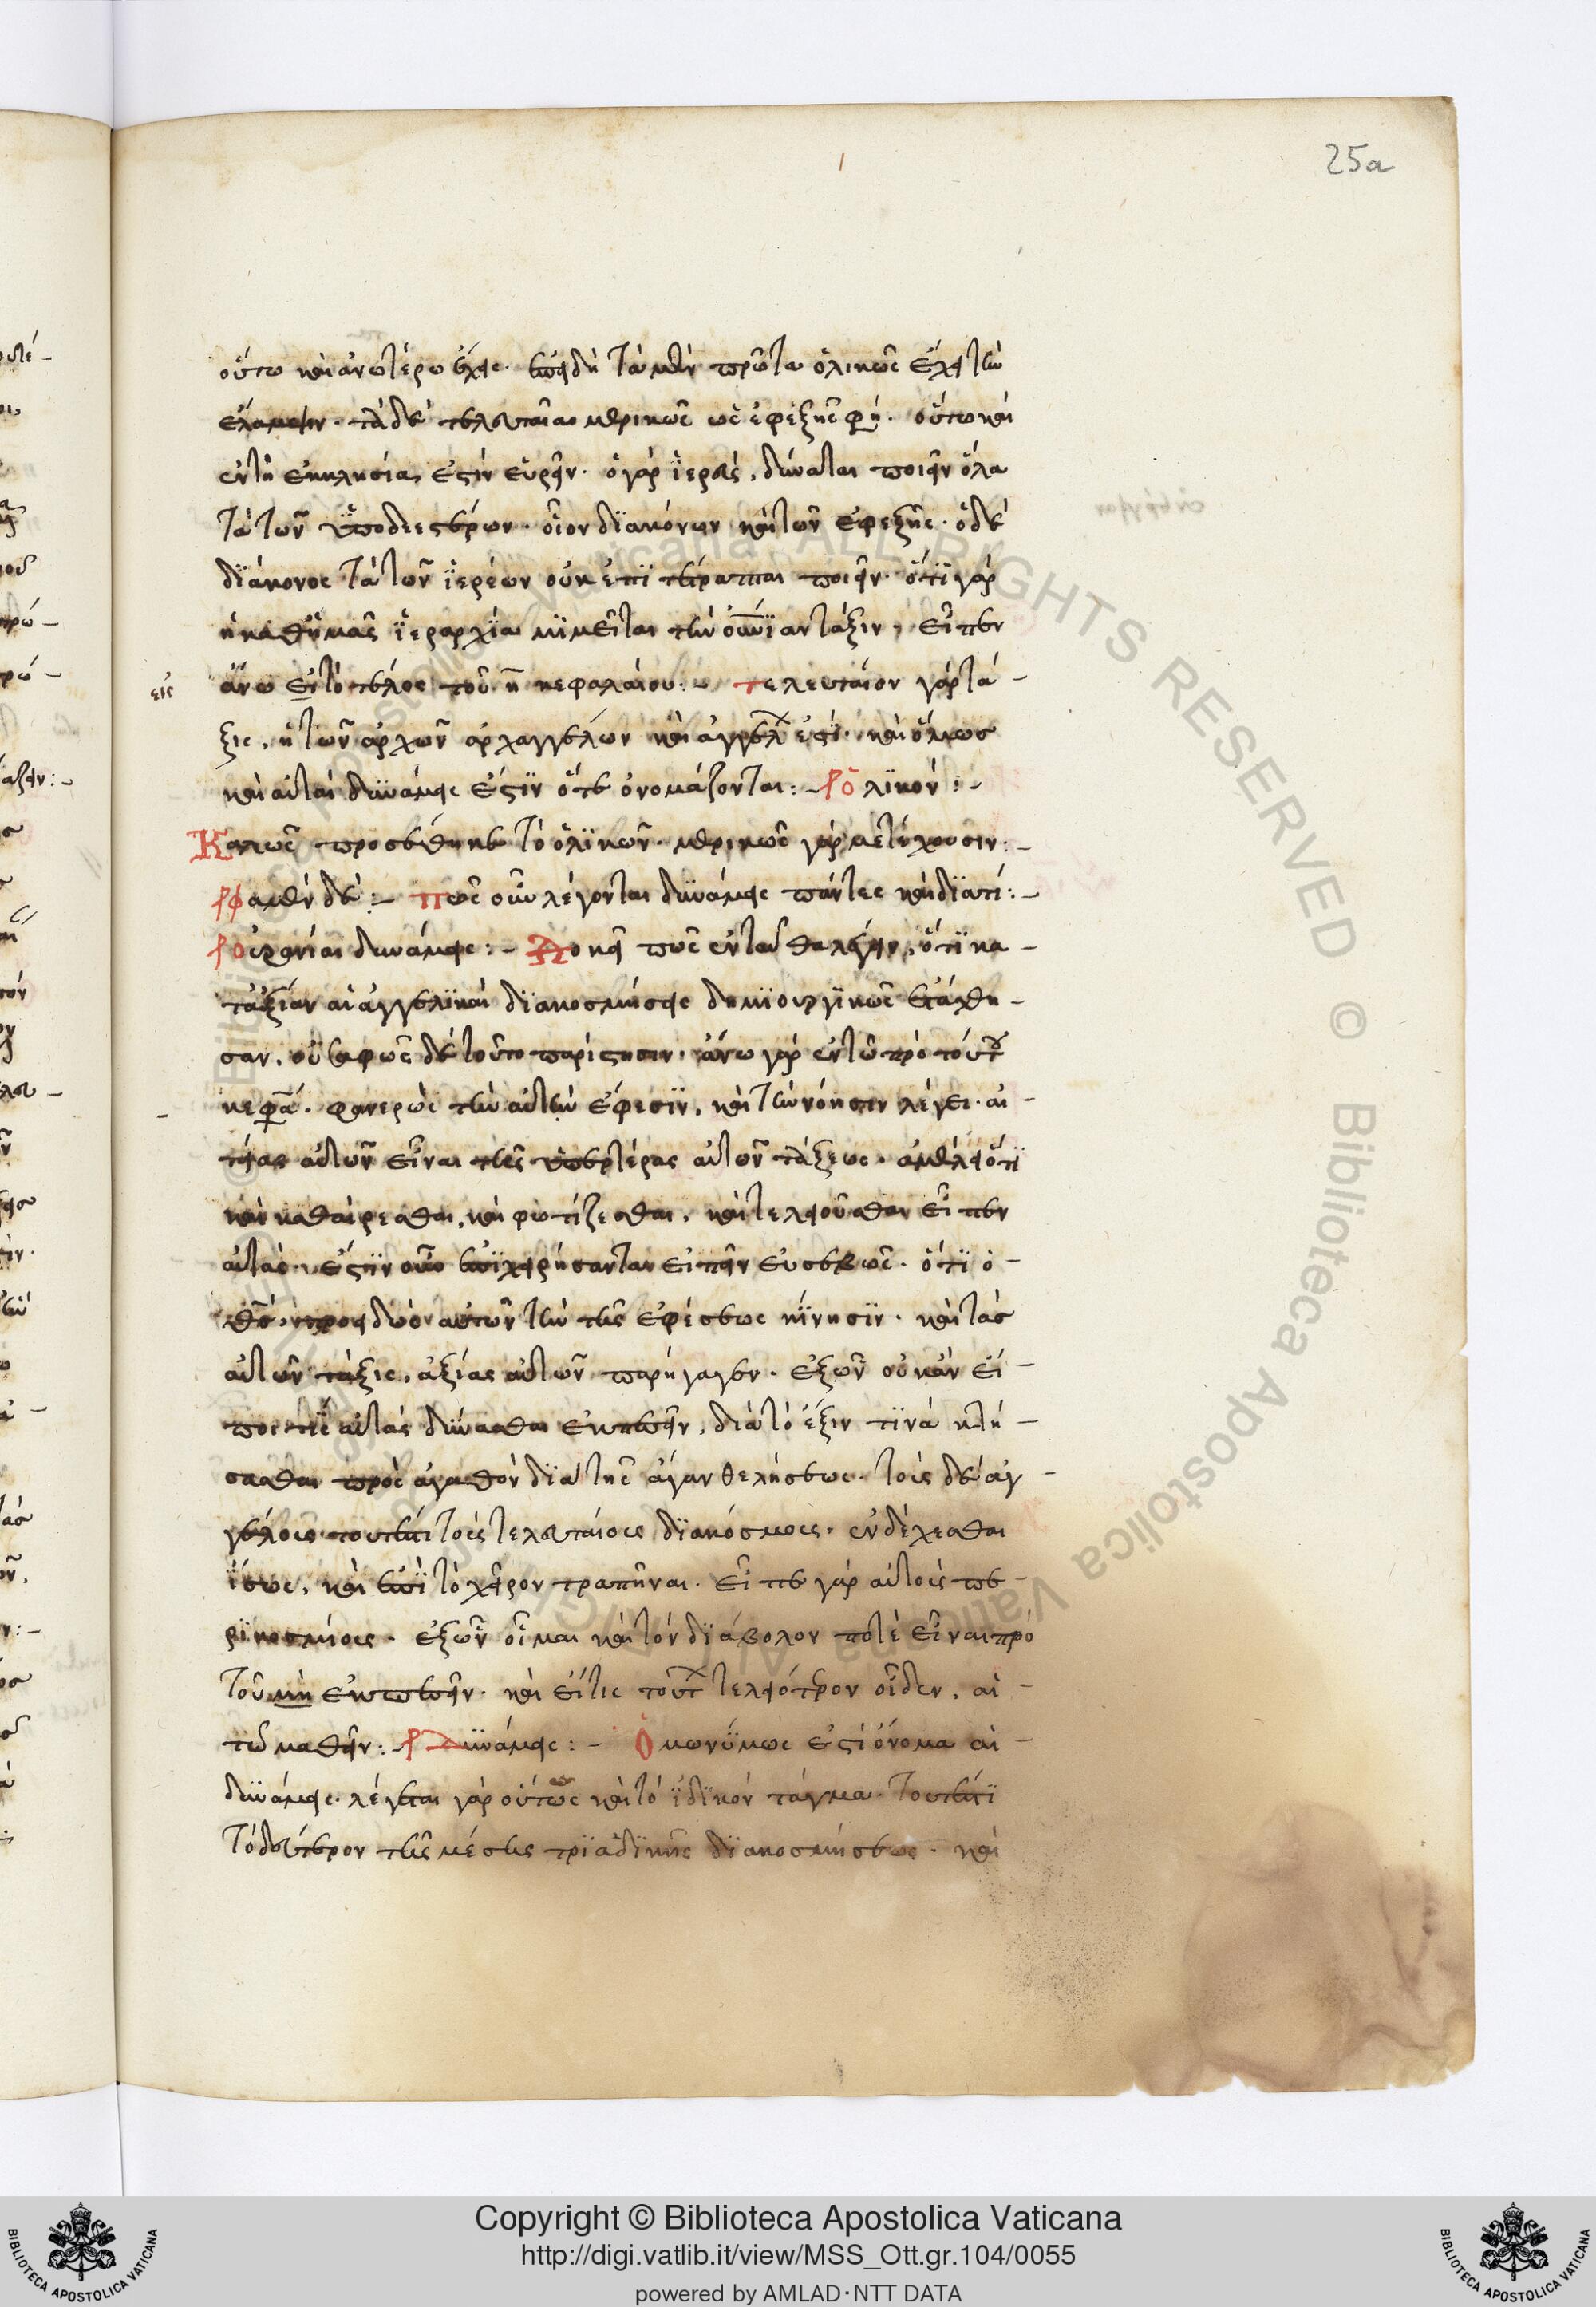 25a
οὕτω καὶ ἀνωτέρω ἔχει. ἐπειδὴ τὰ μὲν πρῶτα ὁλικῶς ἔχει τὴν
ἔλαμψιν. τὰ δὲ τελευταῖα μερικῶς ὡς ἐφεξῆς φη. οὕτω καὶ
ἐν τῇ ἐκκλησίᾳ ἐστὶν εὑρεῖν. ὁ γὰρ ἱερεὺς, δύναται ποιεῖν ὅλα
τὰ τῶν ὑποδεεστέρων. οἷον διακόνων καὶ τῶν ἐφεξῆς. ὁ δὲ
διάκονος τὰ τῶν ἱερέων οὐκ ἐπιτέτραπται ποιεῖν. ὅτι γὰρ
ἡ καθ' ἡμᾶς ἱεραρχία μιμεῖται τὴν οὐνίαν τάξιν, εἶπεν
εἰς
ἄνω εἰς τὸ τέλος τοῦ η κεφαλαίου: τελευταῖον γὰρ τά-
ξις, ἡ τῶν ἀρχῶν ἀρχαγγέλων καὶ ἀγγέλ ἐστί. καὶ ὅμως
καὶ αὗται δυνάμεις ἔστιν ὅτε ὀνομάζονται:- ὁλικόν:-
Καλῶς προσέθηκε τὸ ὁλικῶν. μερικῶς γὰρ μετέχουσιν:-
φαμὲν δὲ:- πῶς οὖν λέγονται δυνάμεις πάντες καὶ διατί:-
οὐράνιαι δυνάμεις:- Δοκεῖ πως ἐνταῦθα λέγειν, ὅτι κα-
τ' ἀξίαν αἱ ἀγγελικαὶ διακοσμήσεις δημιουργικῶς ἐτάχθη-
σαν. οὐ σαφῶς δὲ τοῦτο παρίστησιν. ἄνω γὰρ ἐν τῷ πρὸ τούτου
κεφα. φανερῶς τὴν αὐτῶν ἔφεσιν, καὶ τὴν νόησιν λέγει. αἰ-
τίας αὐτῶν εἶναι τῆς ὑπερτέρας αὐτῶν τάξεως. ἀμέλει ὅτι
καὶ καθαίρεσθαι, καὶ φωτίζεσθαι, καὶ τελειοῦσθαι εἶπεν
αὐτάς. ἔστιν οὖν ἐπιχειρήσαντα εἰπεῖν εὐσεβῶς. ὅτι ὁ
θς, προειδὼς αὐτῶν τὴν τῆς ἐφέσεως κίνησιν. καὶ τὰς
αὐτῶν τάξις, ἀξίας αὐτῶν παρήγαγεν. ἐξ ὧν οὐκ ἂν εἴ-
ποι τις αὐτὰς δύνασθαι ἐκπεσεῖν, διὰ τὸ ἕξιν τινὰ κτή-
σασθαι πρὸς ἀγαθὸν διὰ τῆς ἄγαν θελήσεως. τοῖς δὲ ἀγ
γέλοις τουτέστι τοῖς τελευταίοις διακόσμοις. ἐνδέχεσθαι
ἴσως, καὶ ἐπὶ τὸ χεῖρον τραπῆναι. εἶπε γὰρ αὐτοὺς πε-
ρικοσμίους. ἐξ ὧν οἶμαι καὶ τὸν διάβολον ποτὲ εἶναι πρὸ
τοῦ μὴ ἐκπεσεῖν. καὶ εἴ τις τούτ τελειότερον οἶδεν, αἰ-
τῶ μαθεῖν: Δυνάμεις:- Ὁμωνύμως ἐστὶ ὄνομα αἱ
δυνάμεις. λέγεται γὰρ οὕτως καὶ τὸ ἰδικὸν τάγμα. τουτέστι
τὸ δεύτερον τῆς μέσης τριαδικῆς διακοσμήσεως. καὶ
Copyright © Biblioteca Apostolica Vaticana
http://digi.vatlib.it/view/MSS_Ott.gr.104/0055
powered by AMLAD·NTT DATA